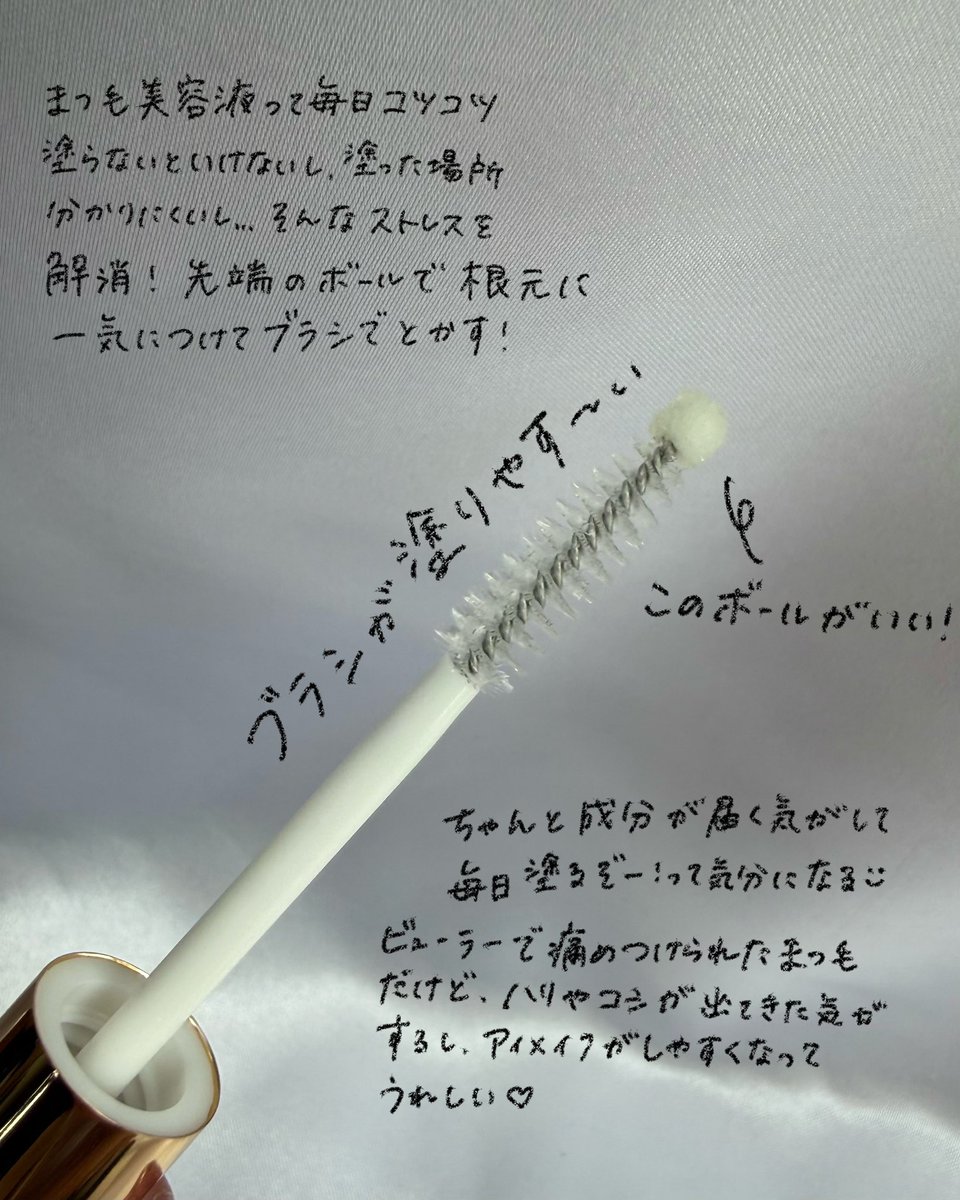 まつ毛美容液って毎日コツコツ
塗らないといけないし、塗った場所
分かりにくいし…そんなストレスを
解消！先端のボールで根元に
一気につけてブラシでとかす！
ブラシが塗りやす〜い
このボールがいい！
ちゃんと成分が届く気がして
毎日塗るぞー！って気分になる
ビューラーで痛めつけられたまつ毛
だけど、ハリやコシが出てきた気が
するし、アイメイクがしやすくなって
うれしい♡